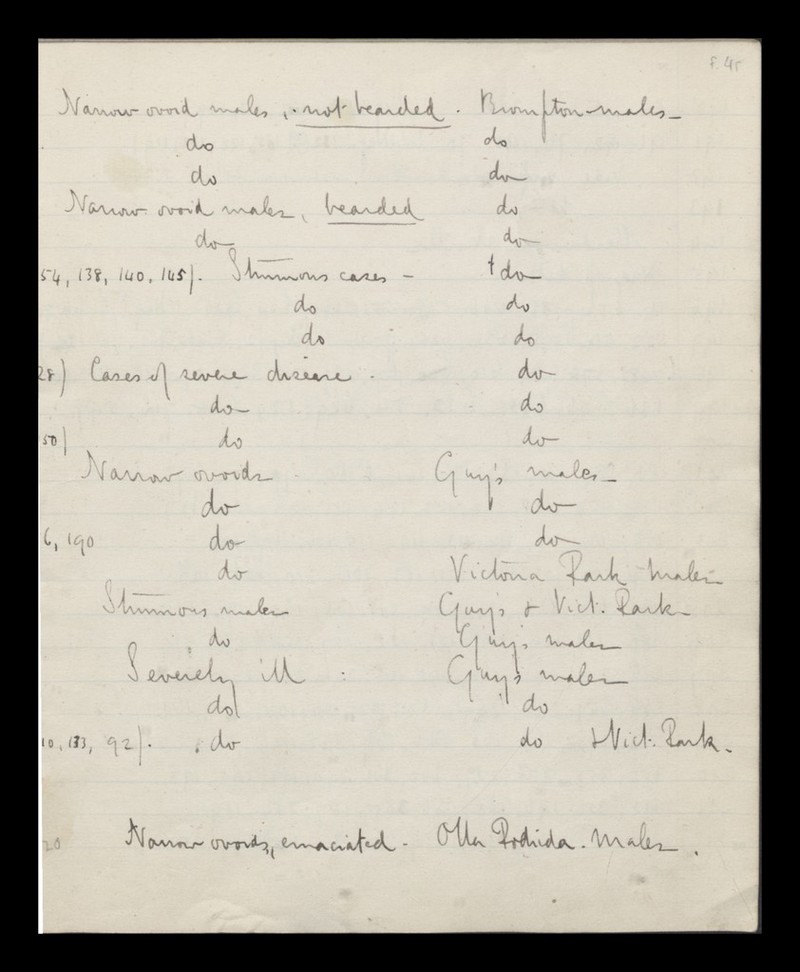 f. 45
Narrow ovoid males, not bearded. Brompton males
do do
do do
Narrow ovoid males, bearded do
do do
54, 138, 140, 145). Strumous cases - † do
do do
do do
28) Cases of severe disease. do
do do
50) do do
Narrow ovoids Guy's males
do do
6, 190 do do
do Victoria Park males
Strumous males Guy's & Vict. Park
do Guy's males
Severely ill Guy's males
do do
10, 133, 92). do do & Vict. Park.
20 Narrow ovoids, emaciated - Olla Podrida. Males.